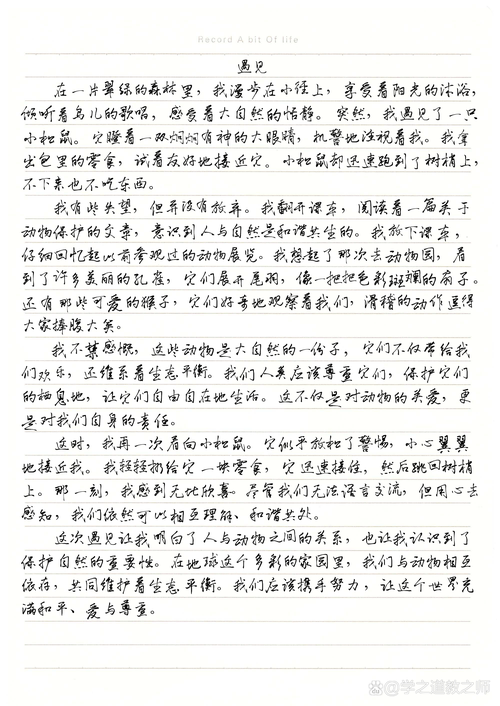 Record A bit Of life
遇见
在一片翠绿的森林里，我漫步在小径上，享受着阳光的沐浴，
倾听着鸟儿的歌唱，感受着大自然的恬静。突然，我遇见了一只
小松鼠。它瞪着一双炯炯有神的大眼睛，机警地注视着我。我拿
出包里的零食，试着友好地接近它。小松鼠却迅速跑到了树梢上，
不下来也不吃东西。
我有些失望，但并没有放弃。我翻开课本，阅读着一篇关于
动物保护的文章，意识到人与自然是和谐共生的。我放下课本，
仔细回忆起以前参观过的动物展览。我想起了那次去动物园，看
到了许多美丽的孔雀，它们展开尾羽，像一把把色彩斑斓的扇子。
还有那些可爱的猴子，它们好奇地观察着我们，滑稽的动作逗得
大家捧腹大笑。
我不禁感慨，这些动物是大自然的一份子，它们不仅带给我
们欢乐，还维系着生态平衡。我们人类应该尊重它们，保护它们
的栖息地，让它们自由自在地生活。这不仅是对动物的关爱，更
是对我们自身的责任。
这时，我再一次看向小松鼠。它似乎放松了警惕，小心翼翼
地接近我。我轻轻扔给它一块零食，它迅速接住，然后跳回树梢
上。那一刻，我感到无比欣喜。尽管我们无法语言交流，但用心去
感知，我们依然可以相互理解、和谐共处。
这次遇见让我明白了人与动物之间的关系，也让我认识到了
保护自然的重要性。在地球这个多彩的家园里，我们与动物相互
依存，共同维护着生态平衡。我们应该携手努力，让这个世界充
满和平、爱与尊重。
学之道教之师